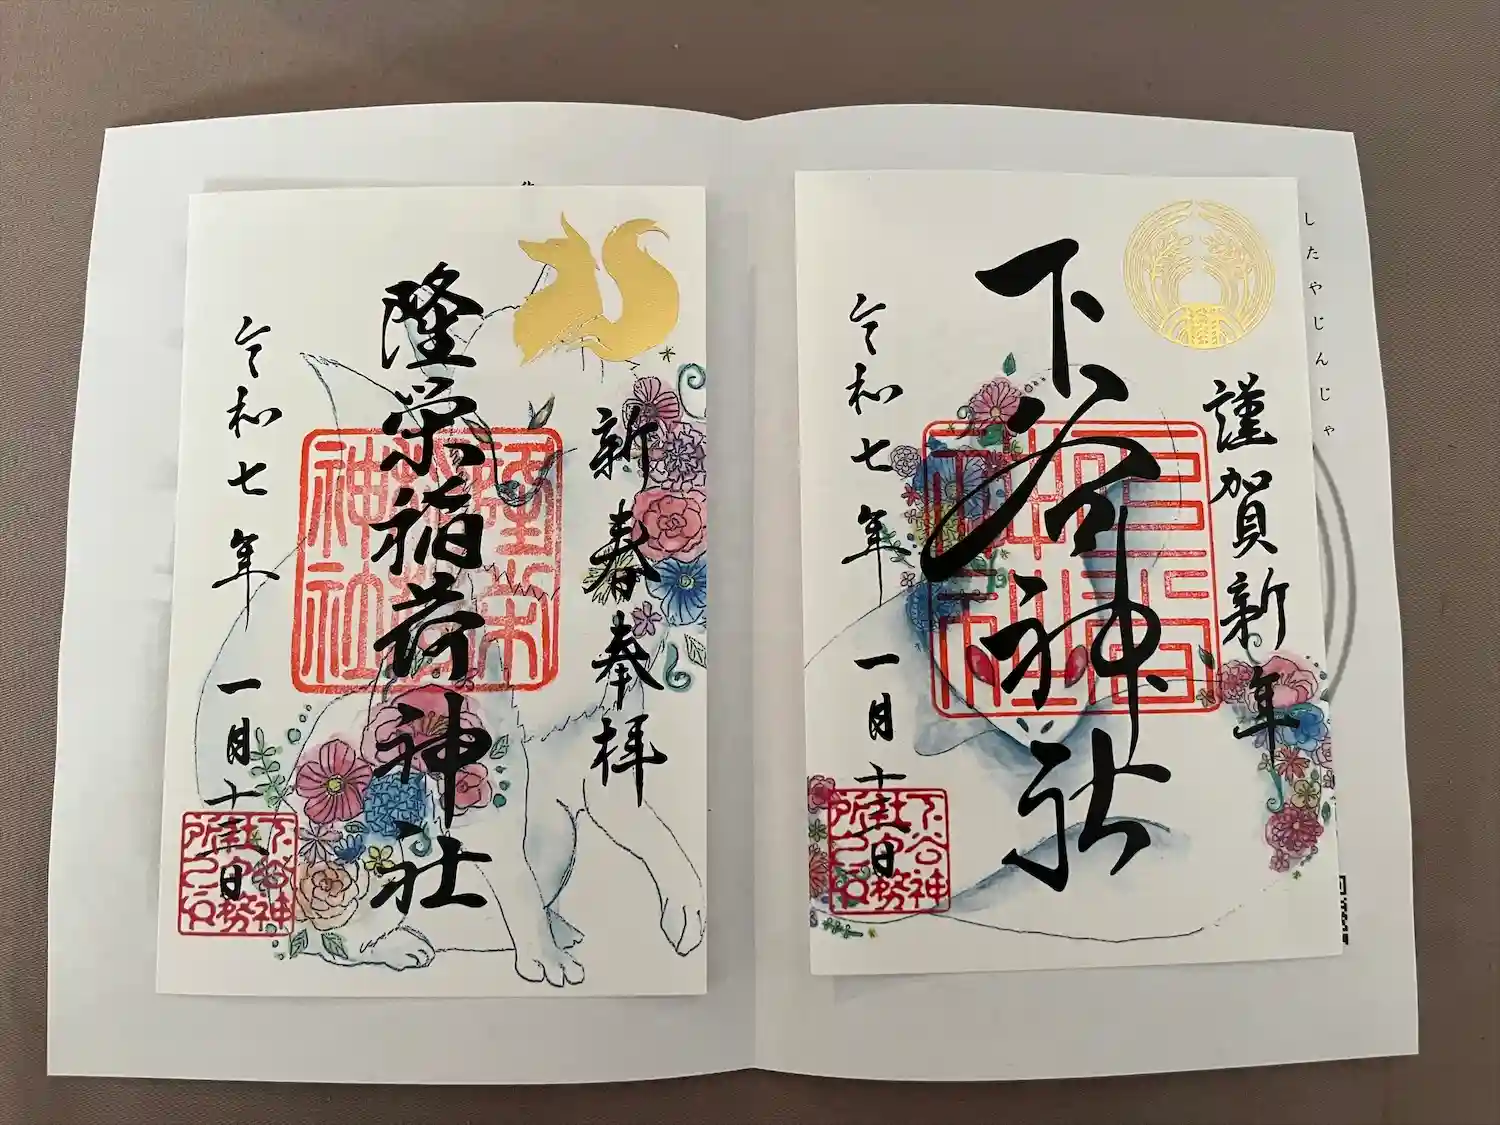 したやじんじゃ
謹賀新年
下谷神社
令和七年一月十三日
下谷神
社宮務
所之印
新春奉拝
隆栄稲荷神社
令和七年一月十三日
隆栄
稲荷
神社
下谷神
社宮務
所之印